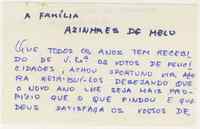 A FAMÍLIA
AZINHARES DE MELO
QUE TODOS OS ANOS TEM RECEBI
DO DE V. Exas OS VOTOS DE FELI
CIDADES, ACHOU OPORTUNO VIR AGO
RA RETRIBUÍ-LOS DESEJANDO QUE
O NOVO ANO LHE SEJA MAIS PRO
PÍCIO QUE O QUE FINDOU E QUE
DEUS SATISFAÇA OS VOSSOS DE